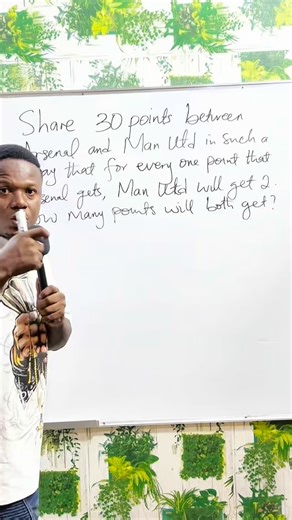 Share 30 points between
Arsenal and Man Utd in such a
way that for every one point that
Arsenal gets, Man Utd will get 2.
How many points will both get?